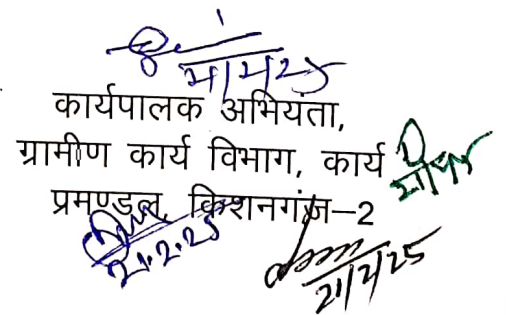 कार्यपालक अभियंता,
ग्रामीण कार्य विभाग, कार्य
प्रमण्डल, किशनगंज–2
21.2.25
21/2/25